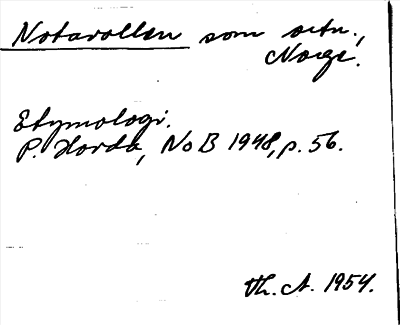 Notarollen som ortn.,
Norge.
Etymologi.
P. Horda, NoB 1948, p. 56.
Th. A. 1954.